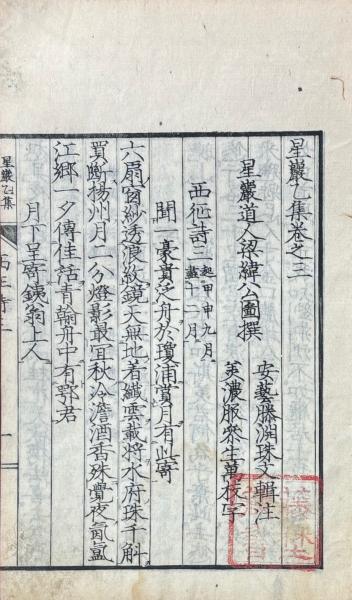 星巖乙集卷之三
星巖道人梁緯公圖撰
安藝藤潤珠文輯注
美濃服參生萬校字
西征詩三 起甲申九月 盡十二月
聞一豪貴泛舟於瓊浦賞月有此寄
六扇窗紗透浪紋鏡天無地着纖雲載將水府珠千斛
買斷揚州月二分燈影最宜秋冷澹酒香殊覺夜氤氳
江鄉一夕傳佳話青翰舟中有鄂君
月下呈寄鐵翁上人
星巖乙集